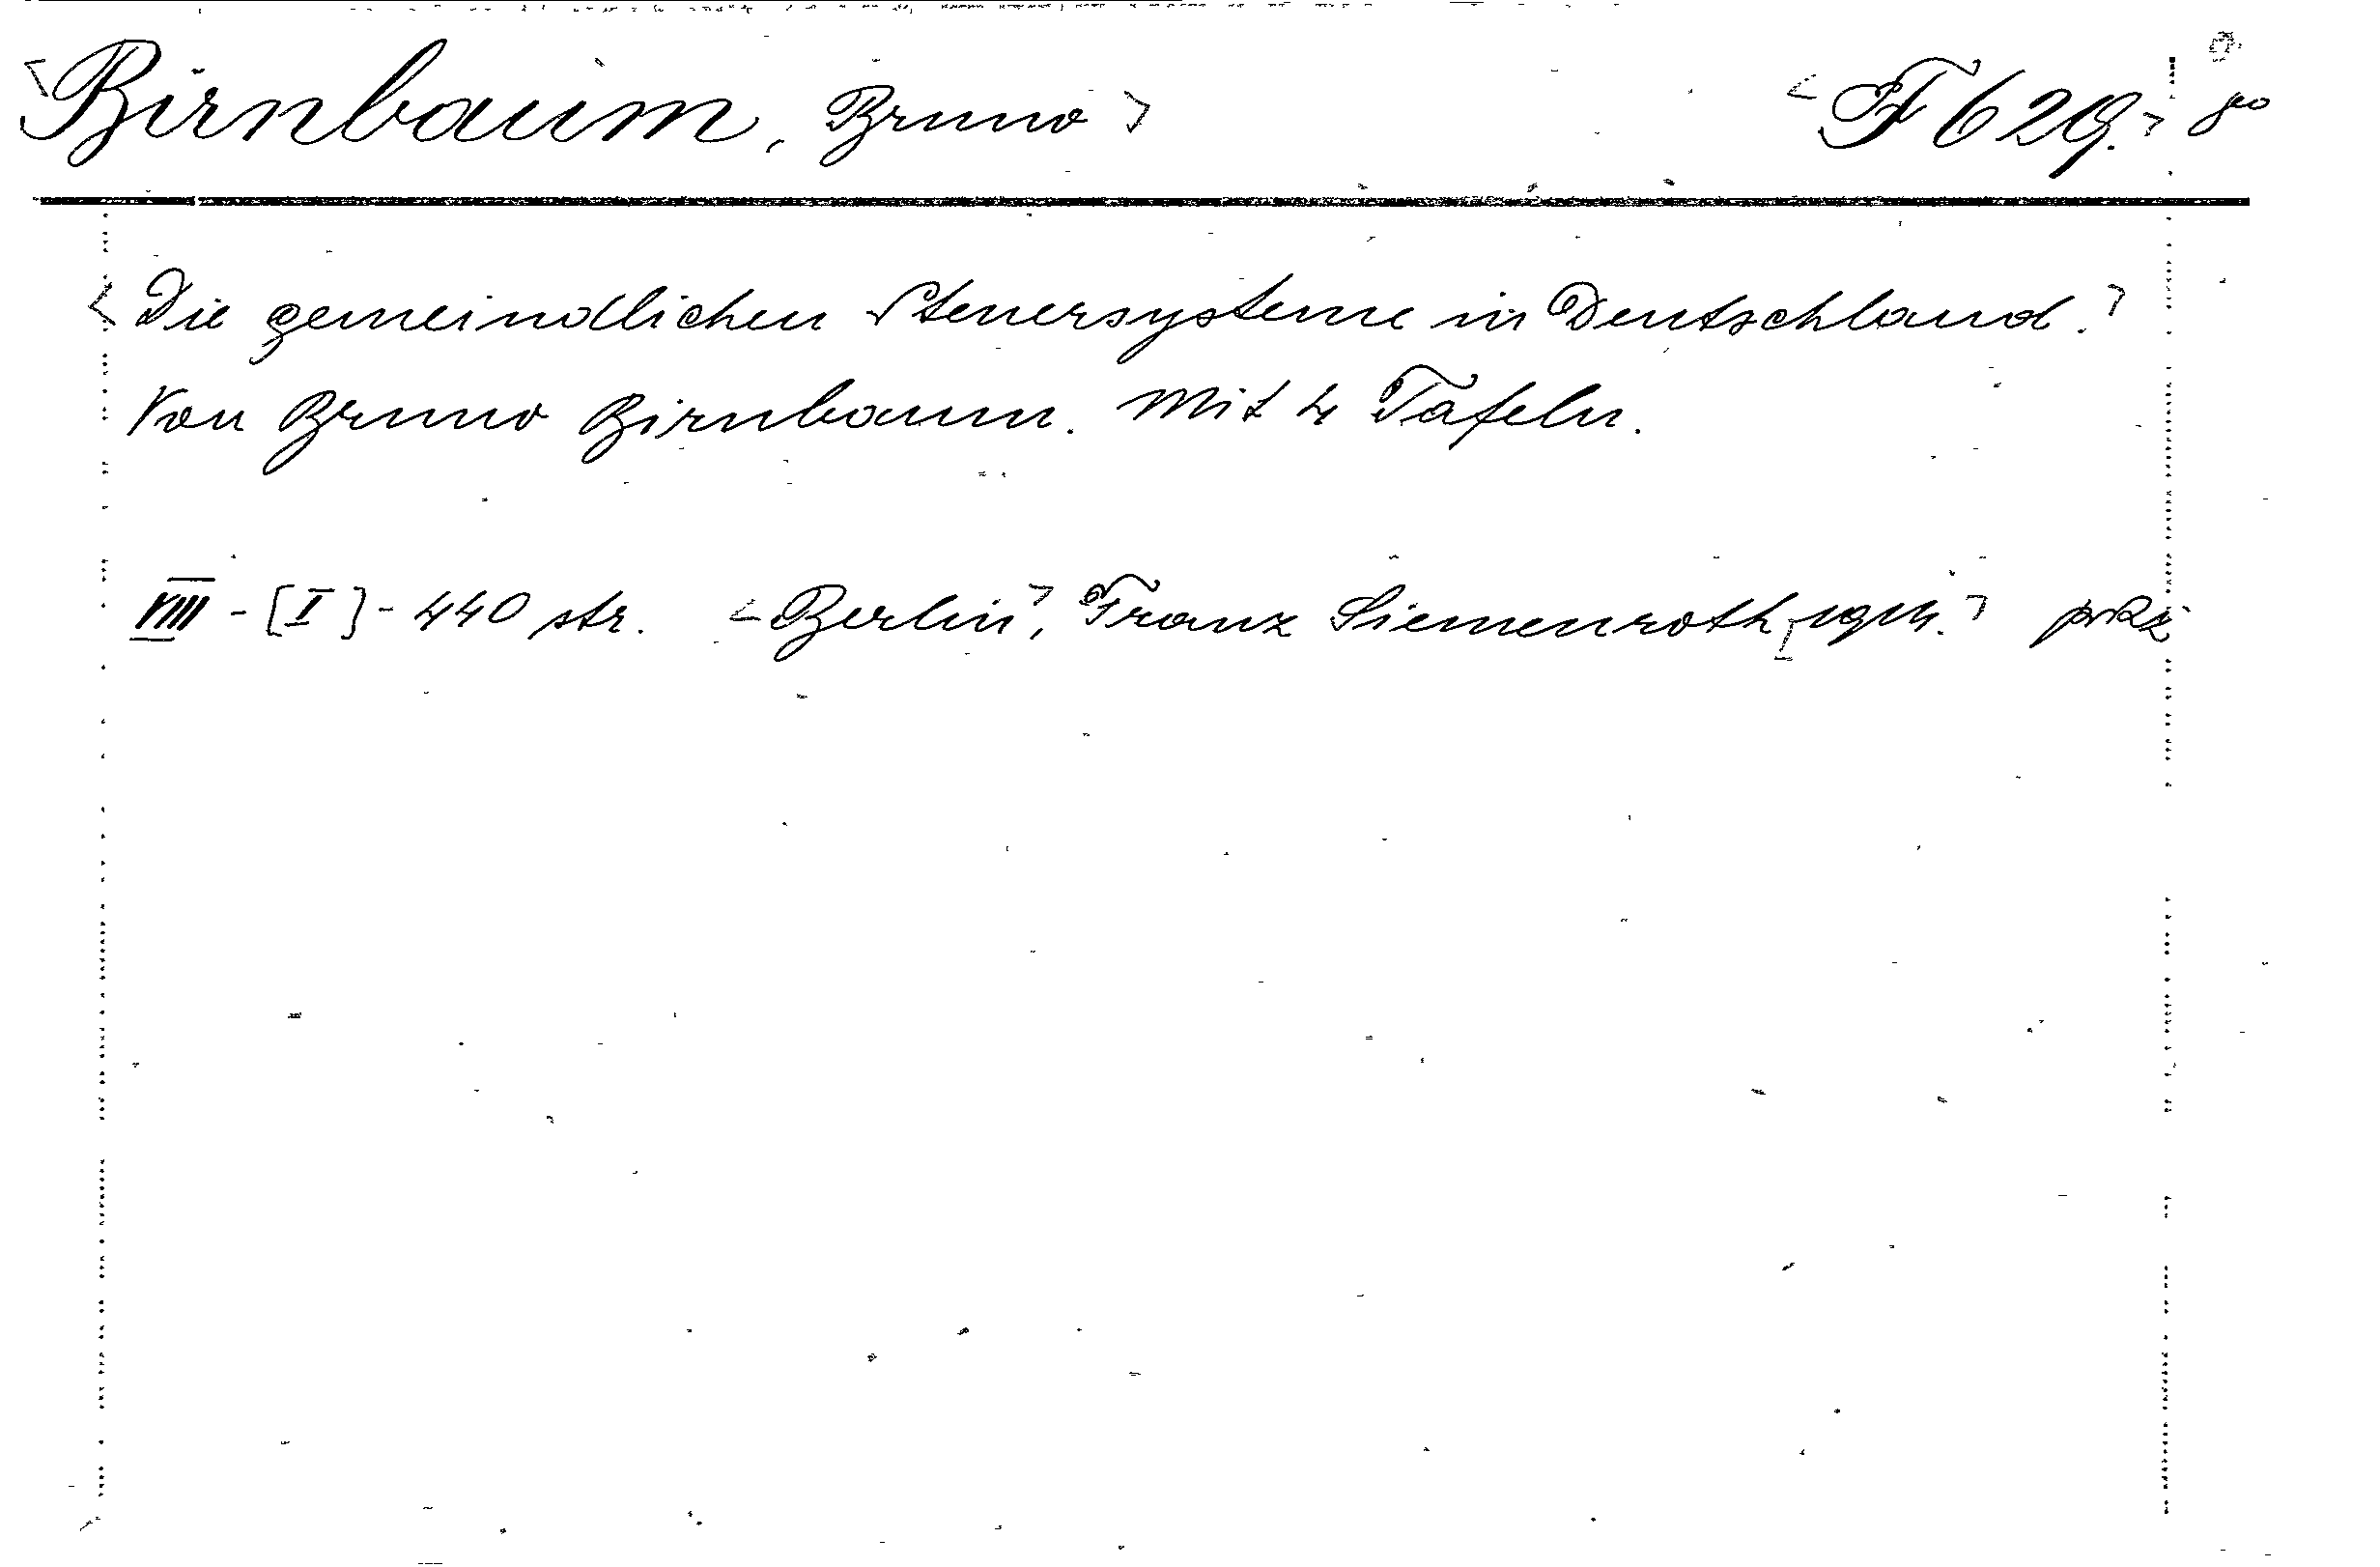 Birnbaum, Bruno F 629. 8°
Die gemeindlichen Steuersysteme in Deutschland.
Von Bruno Birnbaum. Mit 4 Tafeln.
VIII - [I] - 440 str. Berlin, Franz Siemenroth,